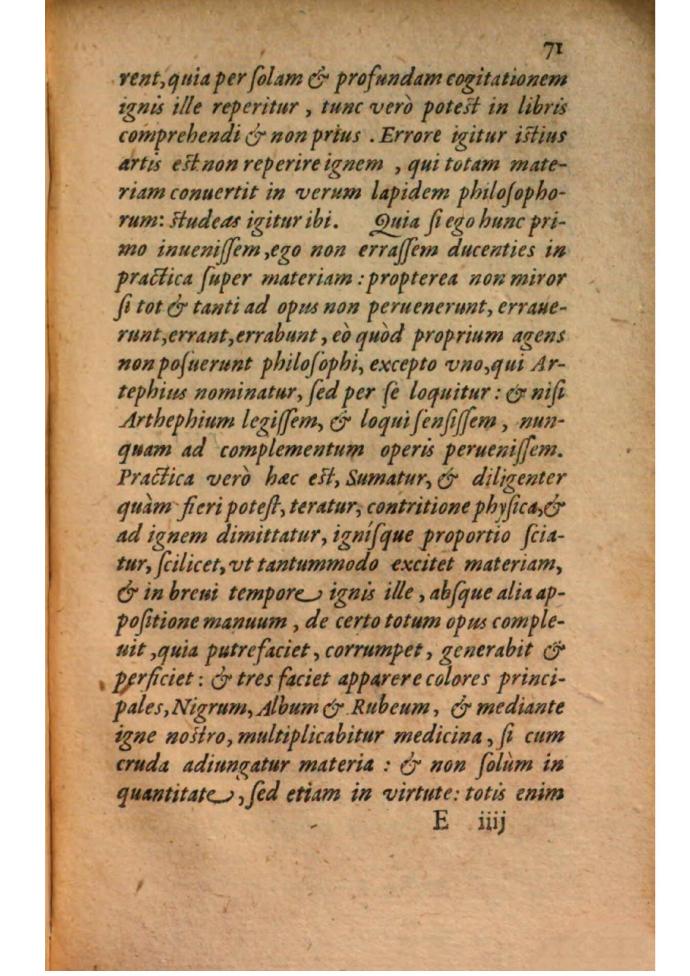 71
rent, quia per ſolam & profundam cogitationem
ignis ille reperitur , tunc verò poteſt in libris
comprehendi & non prius . Errore igitur iſtius
artis eſt non reperire ignem , qui totam mate-
riam conuertit in verum lapidem philoſopho-
rum: ſtudeas igitur ibi. Quia ſi ego hunc pri-
mo inueniſſem, ego non erraſſem ducenties in
practica ſuper materiam : propterea non miror
ſi tot & tanti ad opus non peruenerunt, erraue-
runt, errant, errabunt, eò quòd proprium agens
non poſuerunt philoſophi, excepto vno, qui Ar-
tephius nominatur, ſed per ſe loquitur : & niſi
Arthephium legiſſem, & loqui ſenſiſſem , nun-
quam ad complementum operis perueniſſem.
Practica verò hæc eſt, Sumatur, & diligenter
quàm fieri poteſt, teratur, contritione phyſica, &
ad ignem dimittatur, igníſque proportio ſcia-
tur, ſcilicet, vt tantummodo excitet materiam,
& in breui tempore ignis ille , abſque alia ap-
poſitione manuum , de certo totum opus comple-
uit , quia putrefaciet , corrumpet, generabit &
perficiet : & tres faciet apparere colores princi-
pales, Nigrum, Album & Rubeum, & mediante
igne noſtro, multiplicabitur medicina , ſi cum
cruda adiungatur materia : & non ſolùm in
quantitate, ſed etiam in virtute: totis enim
E iiij